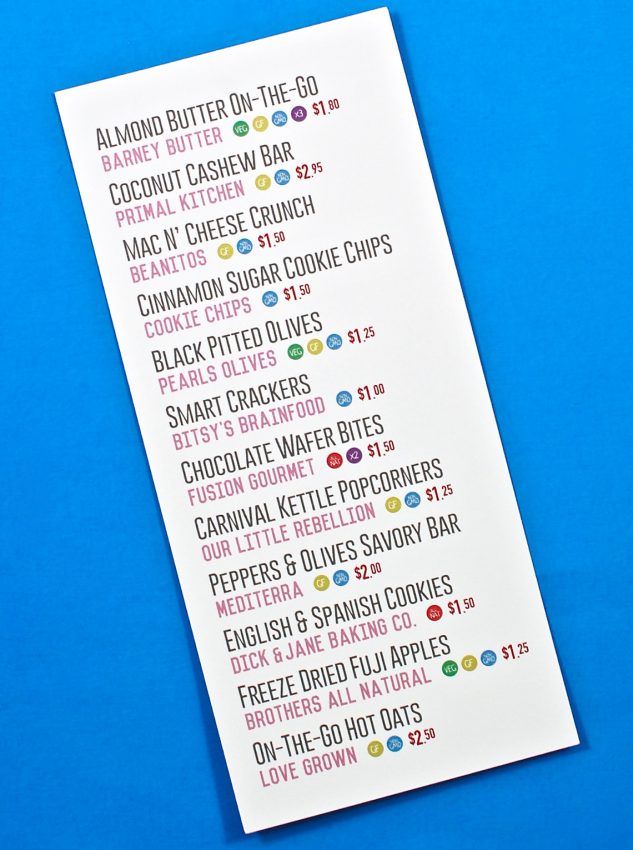 Almond Butter On-The-Go
BARNEY BUTTER VEG GF NON GMO x3 $1.80
Coconut Cashew Bar
PRIMAL KITCHEN GF NON GMO $2.95
Mac N' Cheese Crunch
BEANITOS GF NON GMO $1.50
Cinnamon Sugar Cookie Chips
COOKIE CHIPS NON GMO $1.50
Black Pitted Olives
PEARLS OLIVES VEG GF NON GMO $1.25
Smart Crackers
BITSY'S BRAINFOOD NON GMO $1.00
Chocolate Wafer Bites
FUSION GOURMET ALL NAT x2 $1.50
Carnival Kettle Popcorners
OUR LITTLE REBELLION GF NON GMO $1.25
Peppers & Olives Savory Bar
MEDITERRA GF NON GMO $2.00
English & Spanish Cookies
DICK & JANE BAKING CO. ALL NAT $1.50
Freeze Dried Fuji Apples
BROTHERS ALL NATURAL VEG GF NON GMO $1.25
On-The-Go Hot Oats
LOVE GROWN GF NON GMO $2.50